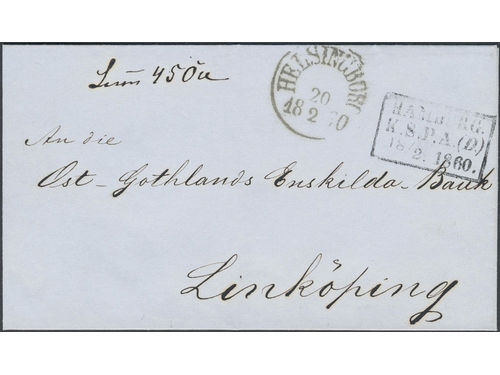 45 Öre
HELSINGBORG
20
18 2 70
HAMBURG.
K.S.P.A.(D)
18/2. 1860.
An die
Ost-Gothlands Enskilda-Bank
Linköping